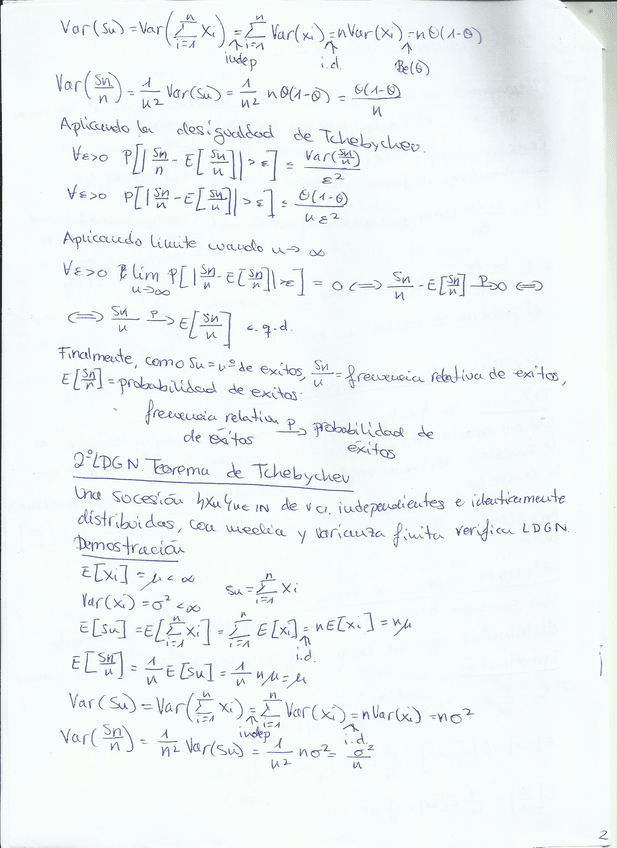 Var(Sn) = Var(∑_{i=1}^{n} Xi) = ∑_{i=1}^{n} Var(Xi) = nVar(Xi) = nθ(1-θ)
indep i.d. Be(θ)
Var(Sn/n) = 1/n² Var(Sn) = 1/n² nθ(1-θ) = θ(1-θ)/n
Aplicando la desigualdad de Tchebychev.
∀ε>0 P[|Sn/n - E[Sn/n]| > ε] ≤ Var(Sn/n)/ε²
∀ε>0 P[|Sn/n - E[Sn/n]| > ε] ≤ θ(1-θ)/nε²
Aplicando límite cuando n→∞
∀ε>0 lim_{n→∞} P[|Sn/n - E[Sn/n]| > ε] = 0 ⟺ Sn/n - E[Sn/n] →^P 0 ⟺
⟺ Sn/n →^P E[Sn/n] c.q.d.
Finalmente, como Sn = nº de exitos, Sn/n = frecuencia relativa de exitos,
E[Sn/n] = probabilidad de exitos:
frecuencia relativa →^P probabilidad de
de éxitos éxitos
2º LDGN. Teorema de Tchebychev
Una sucesión {Xn}n∈IN de v.a. independientes e identicamente
distribuidas, con media y varianza finita verifican LDGN.
Demostración
E[Xi] = μ < ∞
Sn = ∑_{i=1}^{n} Xi
Var(Xi) = σ² < ∞
E[Sn] = E[∑_{i=1}^{n} Xi] = ∑_{i=1}^{n} E[Xi] = nE[Xi] = nμ
i.d.
E[Sn/n] = 1/n E[Sn] = 1/n nμ = μ
Var(Sn) = Var(∑_{i=1}^{n} Xi) = ∑_{i=1}^{n} Var(Xi) = nVar(Xi) = nσ²
indep i.d.
Var(Sn/n) = 1/n² Var(Sn) = 1/n² nσ² = σ²/n
2